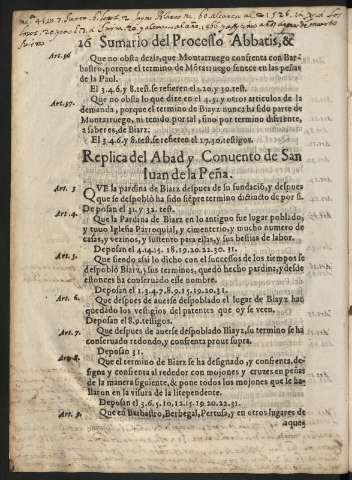 26 Sumario del Processo Abbatis, &
Art. 36 Que no obsta dezir, que Montarruego confrenta con Bar-
bastro, porque el termino de Mōtaruego fenece en las peñas
de la Paul.
El 3.4.6.y 8.test.se refieren el 2.20.y 30.test.
Art. 37. Que no obsta lo que dize en el 4.5.y otros articulos de la
demanda, porque el termino de Biarz nunca ha sido parte de
Montarruego, ni tenido por tal, sino por termino diferente,
a saber es, de Biarz.
El 3.4.6.y 8.test.se refieren el 17.30.testigos.
Replica del Abad y Conuento de San
Iuan de la Peña.
Art. 3 QVE la pardina de Biarz despues de su fundació, y despues
que se despobló ha sido sièpre termino distincto de por si.
Deposan el 31.y 32. test.
Art. 4. Que la Pardina de Biarz en lo antiguo fue lugar poblado,
y tuuo Iglesia Parroquial, y cimenterio, y mucho numero de
casas, y vezinos, y sustento para ellos, y sus bestias de labor.
Deposan el 4.14.5. 18.19.20.22.30. 31.
Que siendo assi lo dicho con el successos de los tiempos se
despobló Biarz, y sus terminos, quedò hecho pardina, y desde
entonces ha conseruado esse nombre.
Deposan el 1.3.4.7.8.9.15.19.20.31.
Art. 6. Que despues de auerse despoblado el lugar de Biayz han
quedado los vestigios del patentes que oy se veen.
Deposan el 8.9.testigos.
Art. 7. Que despues de auerse despoblado Biayz, su termino se ha
conseruado redondo, y confrenta prout supra.
Deposan 31.
Art. 8. Que el termino de Biarz se ha designado, y confrenta, de-
signa y confrenta al rededor con mojones y cruzes en peñas
de la manera siguiente, & pone todos los mojones que se ha-
llaron en la visura de la litependente.
Deposan el 3.6.5.10.12.15.19.20.22.31.
Art. 9. Que en Barbastro, Berbegal, Pertusa, y en otros lugares de
aques